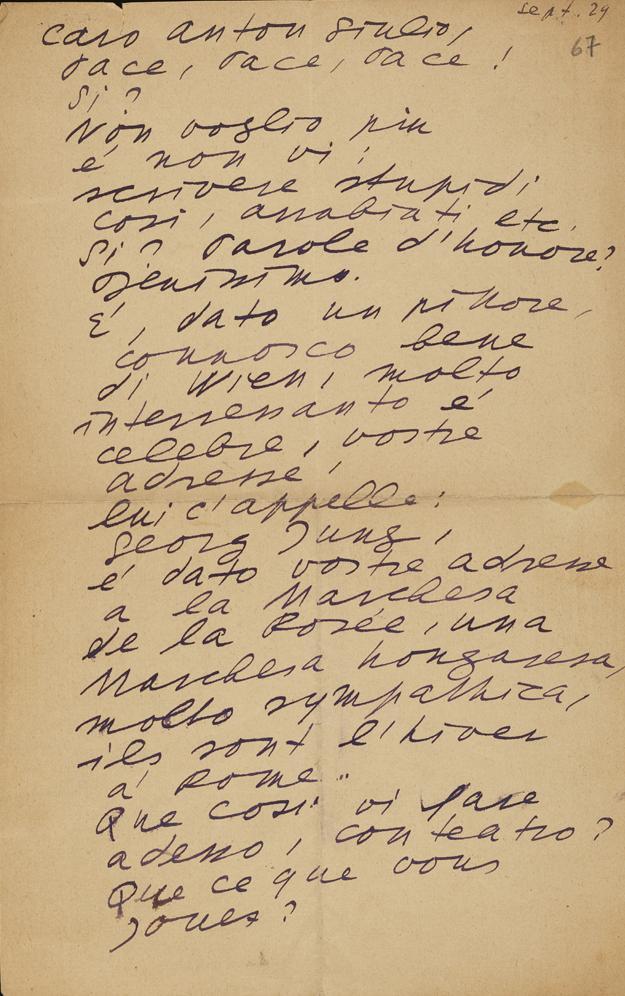 sept. 29
67
caro anton giulio,
pace, pace, pace!
Si?
Non voglio piu
é non vi:
scrivere stupidi
cosi, arrabiati etc.
Si? Parole d'honore?
é, dato un pittore,
connosco bene
di Wien, molto
interressanto é
celebre, vostre
adresse,
lui c'appelle:
georg Jung,
é dato vostre adresse
a la Marchesa
de la Rosée, una
Marchesa hongaresa,
molto sympathica,
ils sont l'hiver
a' Rome..
Que cosi vi fare
adesso, con teatro?
Que ce que vous
Jouez?